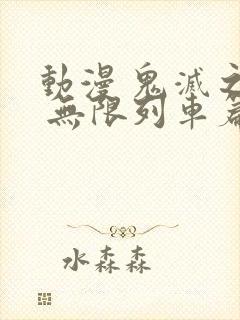 動漫鬼滅之
無限列車篇
水森森